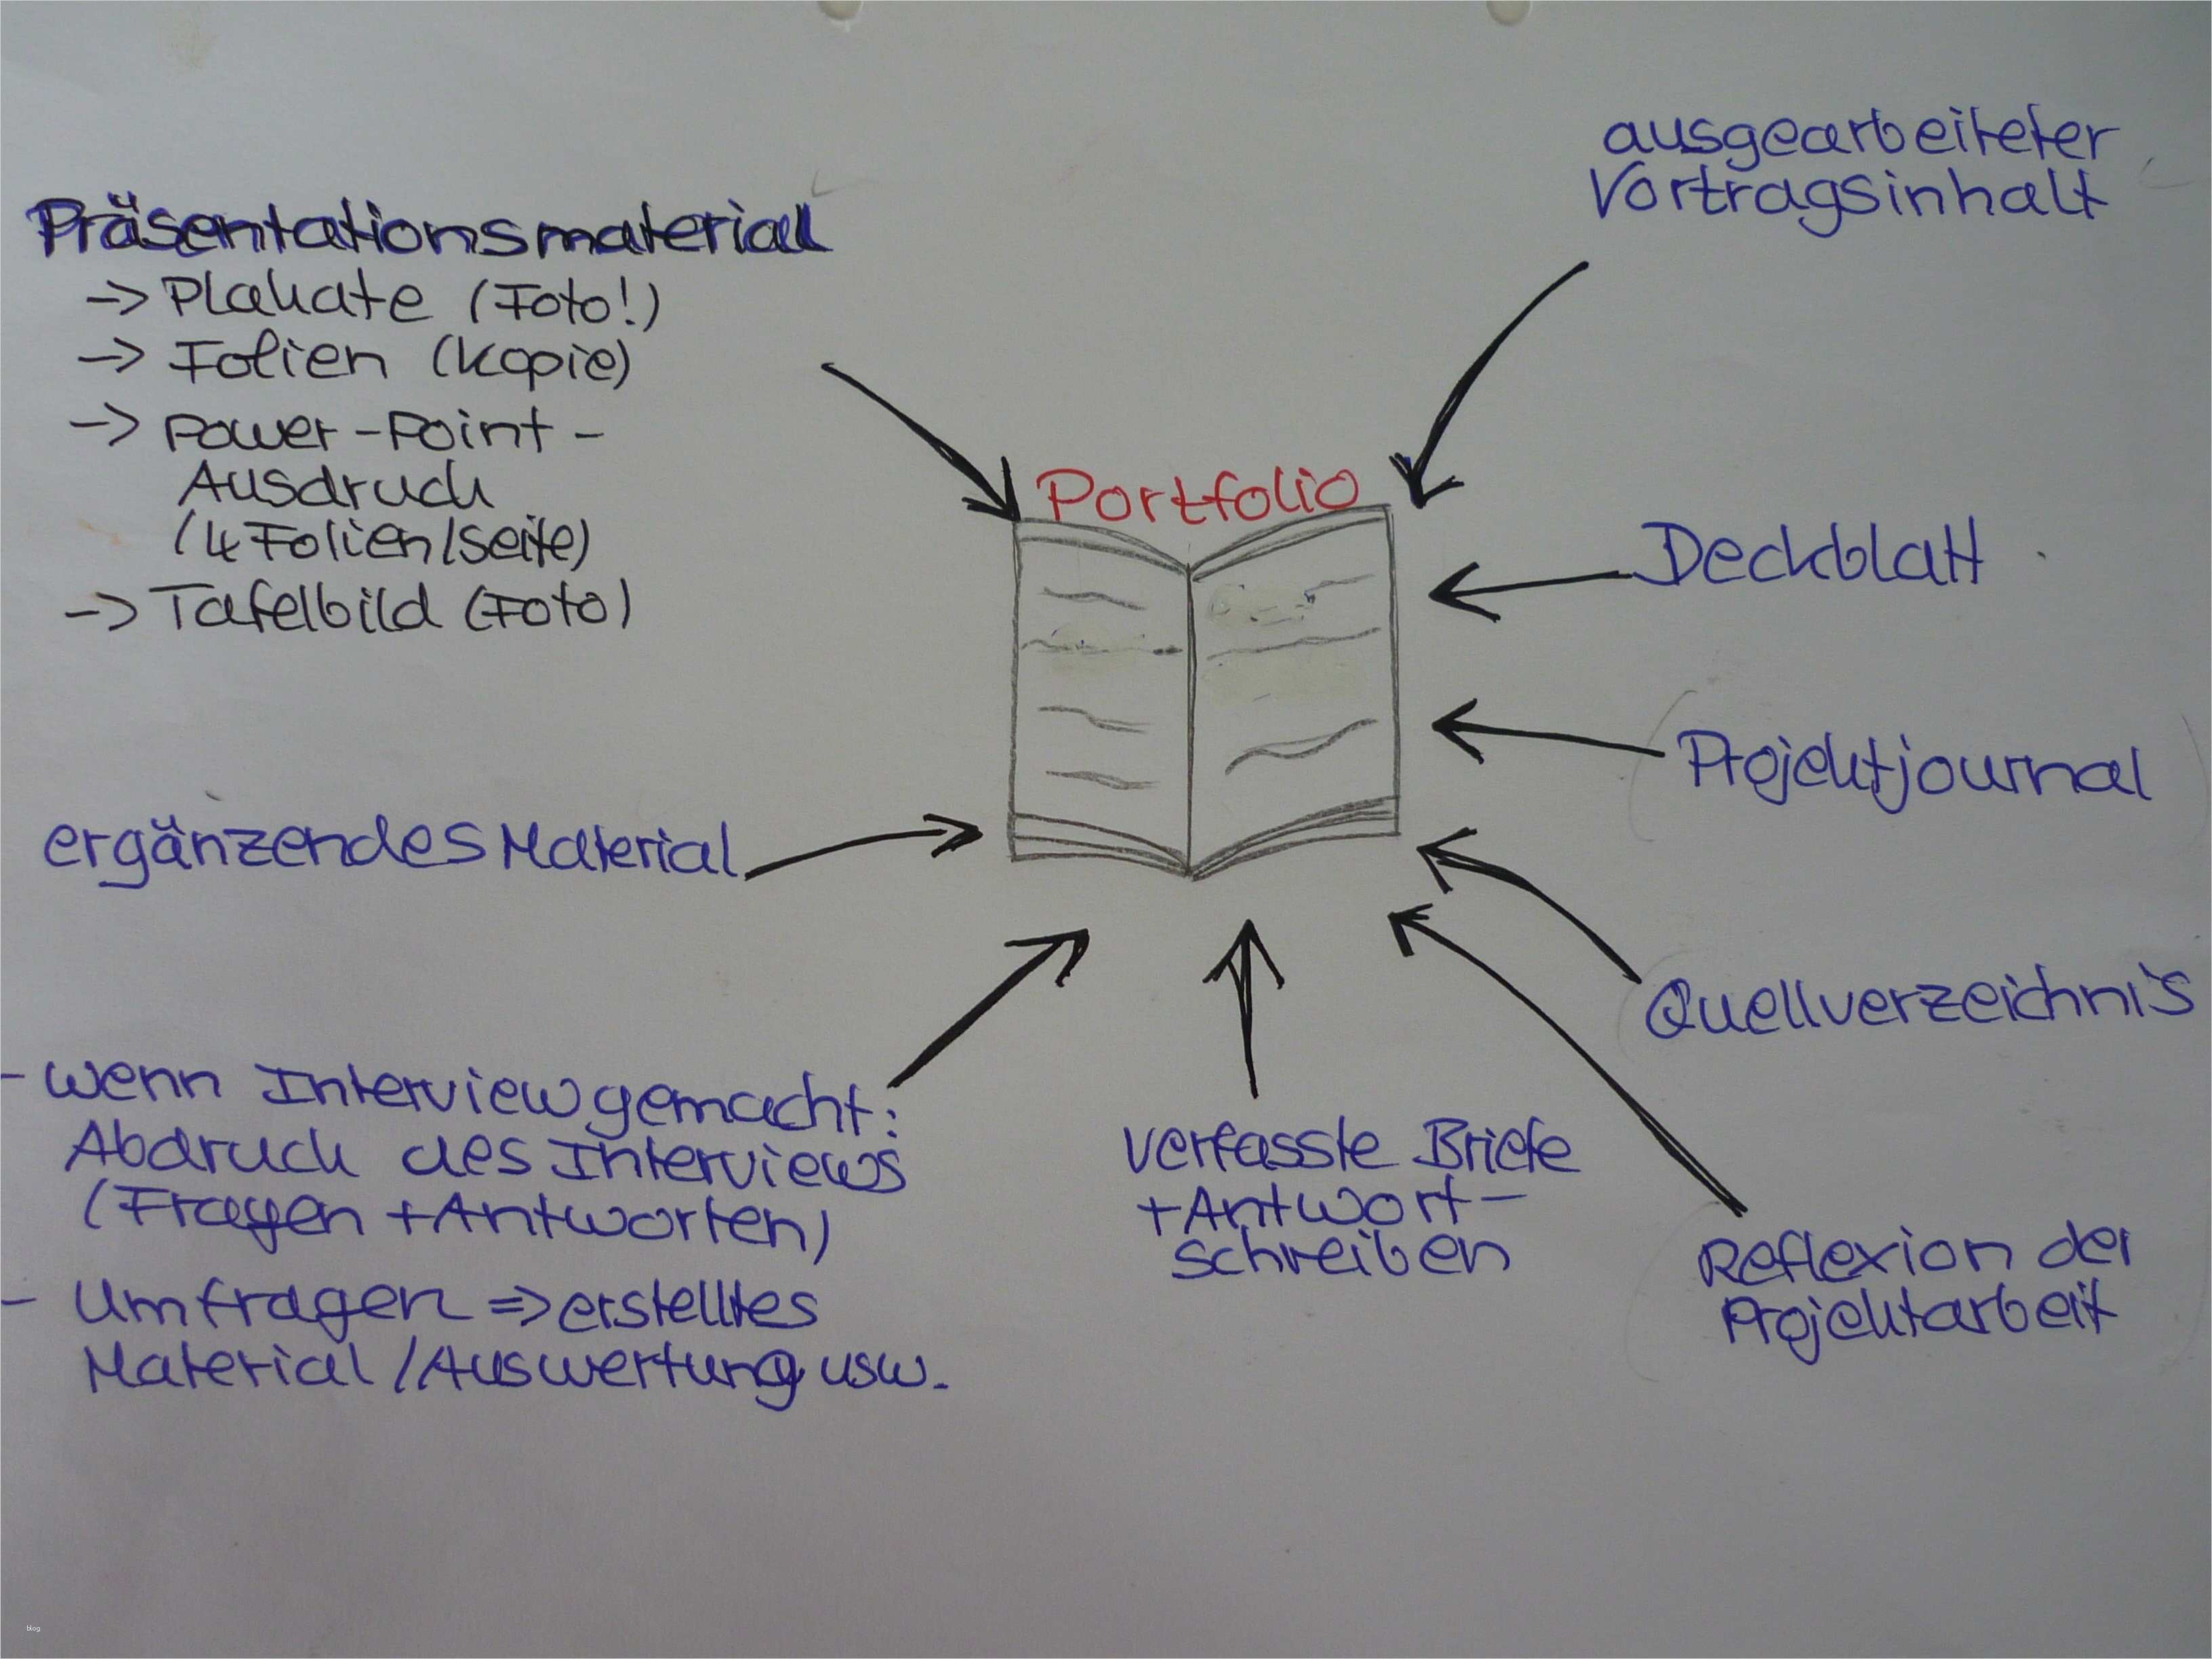 Präsentationsmaterial
-> Plakate (Foto!)
-> Folien (Kopie)
-> Power-Point-
Ausdruck
(4 Folien/Seite)
-> Tafelbild (Foto)
ergänzendes Material
- wenn Interview gemacht:
Abdruck des Interviews
(Fragen + Antworten)
- Umfragen => erstelltes
Material/Auswertung usw.
Portfolio
verfasste Briefe
+ Antwort-
schreiben
ausgearbeiteter
Vortragsinhalt
Deckblatt
Projektjournal
Quellverzeichnis
Reflexion der
Projektarbeit
blog